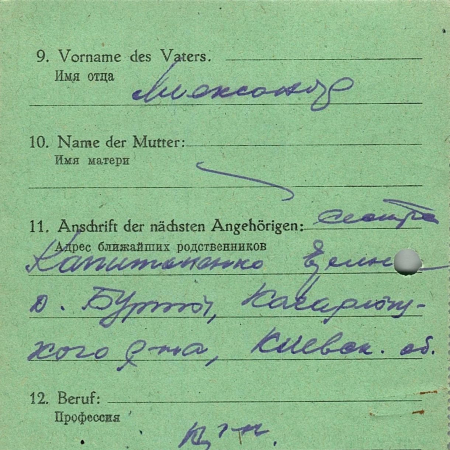 9. Vorname des Vaters.
Имя отца
Александр
10. Name der Mutter:
Имя матери
11. Anschrift der nächsten Angehörigen: сестра
Адрес ближайших родственников
Капитоненко
д. Бурты, Кагарлыц-
кого р-на, Киевск. об.
12. Beruf:
Профессия